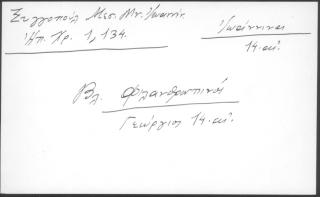 Ξυγγοπούλ Μεσ. Μν. Ἰωανν.
Ἠπ. Χρ. 1, 134.
Ἰωάννινα
14. αἰ.
Βλ. Φιλανθρωπινοί
Γεώργιος 14. αἰ.